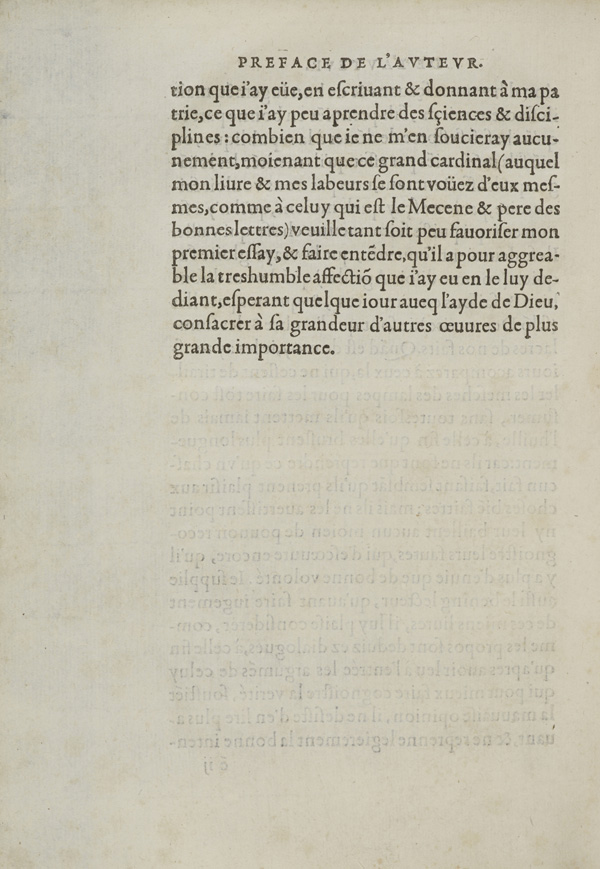 PREFACE DE L'AVTEVR.
tion que i'ay eüe, en eſcriuant & donnant à ma pa
trie, ce que i'ay peu aprendre des ſçiences & diſci-
plines : combien que ie ne m'en ſoucieray aucu-
nement, moienant que ce grand cardinal (auquel
mon liure & mes labeurs ſe ſont voüez d'eux meſ-
mes, comme à celuy qui eſt le Mecene & pere des
bonnes lettres) veuille tant ſoit peu fauoriſer mon
premier eſſay, & faire entēdre, qu'il a pour aggrea-
ble la treshumble affectiō que i'ay eu en le luy de-
diant, eſperant quelque iour aueq l'ayde de Dieu,
conſacrer à ſa grandeur d'autres œuures de plus
grande importance.